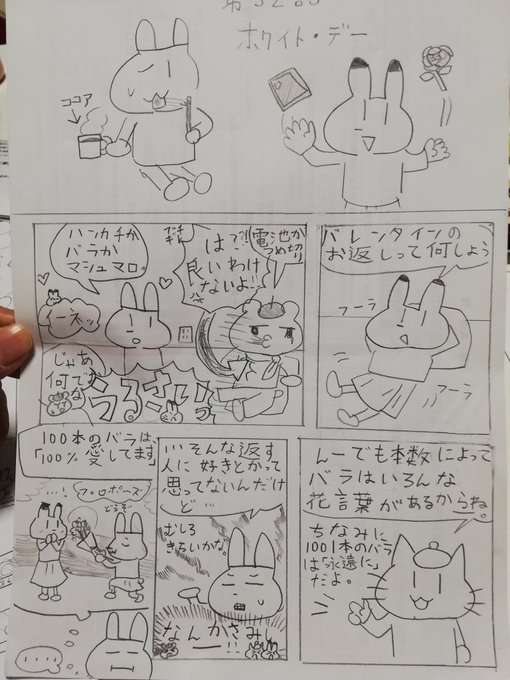 第32話
ホワイト・デー
ココア
バレンタインの
お返しって何しよう
ブーラ
アーラ
電池か
つめ切り
は?!
良いわけ
ないよ!
ハンカチか
バラか
マシュマロ。
イーネッ
じゃあ
うるさいっ
んーでも本数によって
バラはいろんな
花言葉があるからね。
ちなみに
1001本のバラ
は「永遠に」
だよ。
いいそんな返す
人に好きとかって
思ってないんだけ
ど…
むしろ
きらいかな。
なんかさみしー!!
100本のバラは、
「100%愛してます」
…!
プロポーズ
どうぞ
....